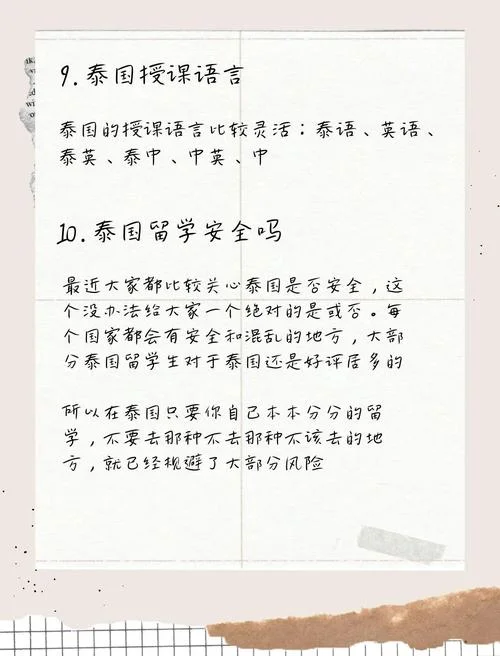 9. 泰国授课语言
泰国的授课语言比较灵活：泰语、英语、
泰英、泰中、中英、中
10. 泰国留学安全吗
最近大家都比较关心泰国是否安全，这
个没办法给大家一个绝对的是或否。每
个国家都会有安全和混乱的地方，大部
分泰国留学生对于泰国还是好评居多的
所以在泰国只要你自己本本分分的留
学，不要去那种不去那种不该去的地
方，就已经规避了大部分风险